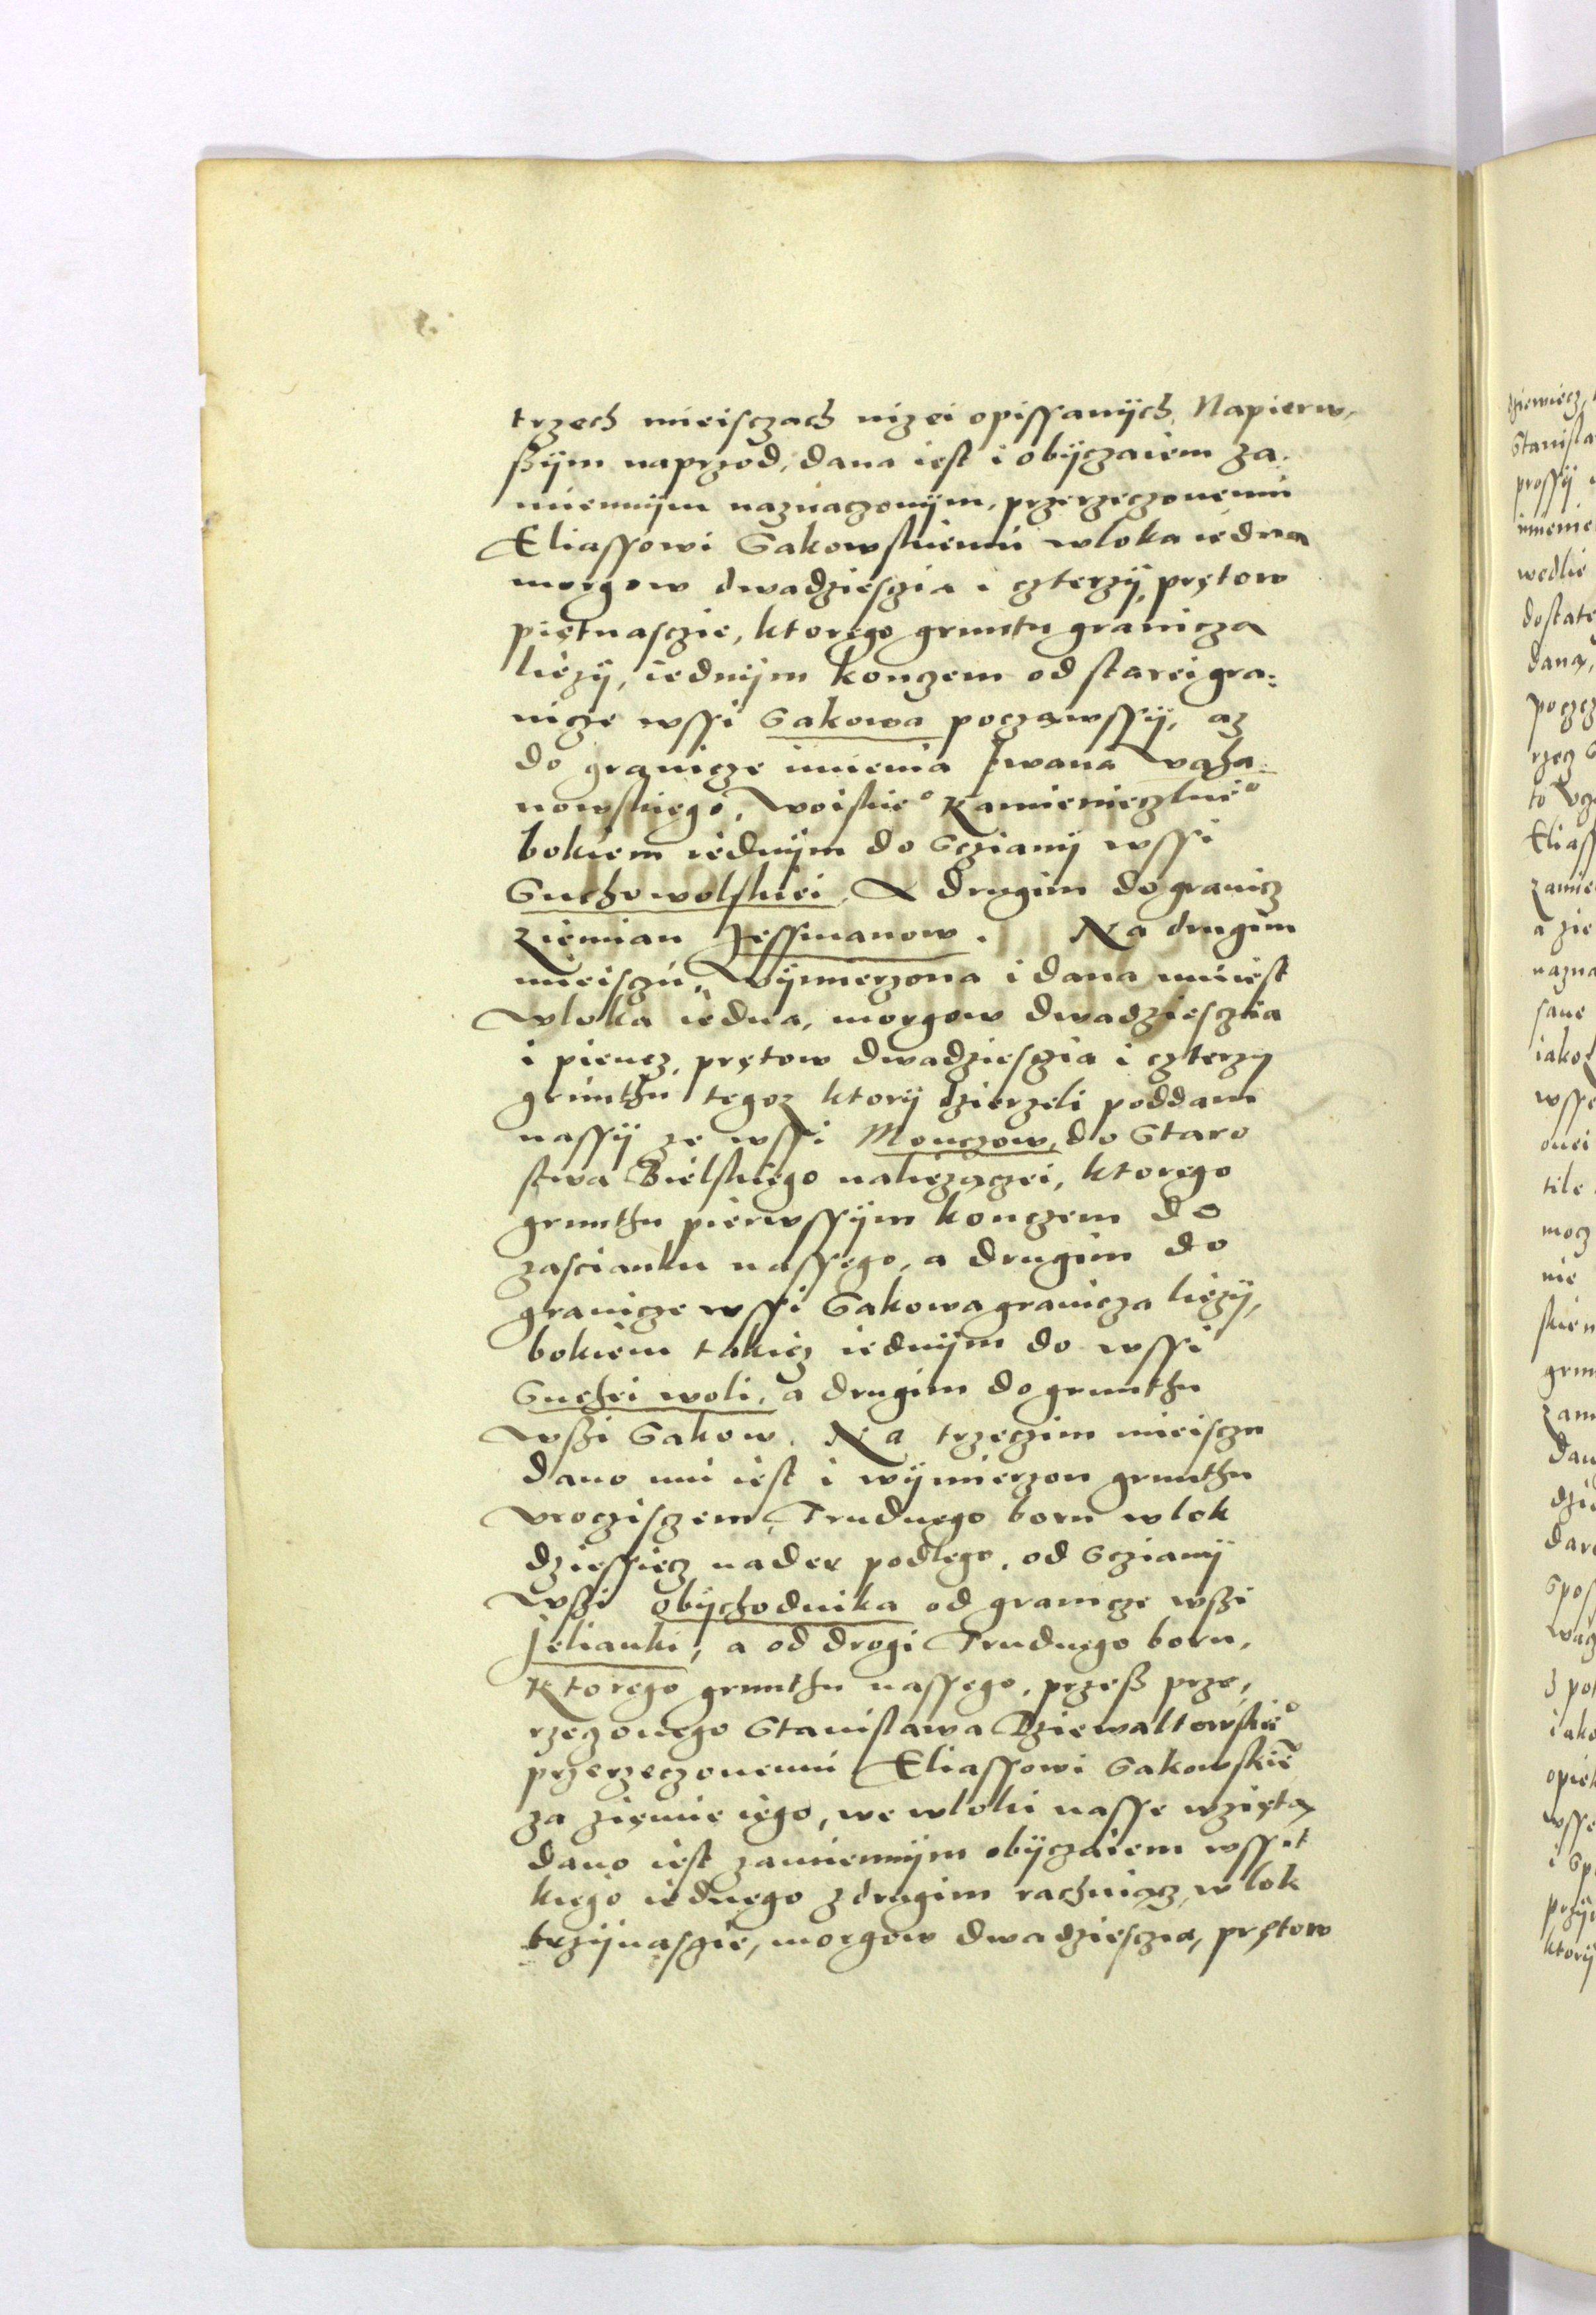 trzech mieisczach nizei opissanÿch, Napierw,
ßÿm naprzod, dana iest i obÿczaiem za,
miennÿm naznaczonÿm, przerzeczonemu
Eliassowi Sakowskiemu wloka iedna
morgow dwadziesczia i czterzÿ, prętow
piętnasczie, ktorego gruntu granicza
liezÿ, iednÿm konczem od starei gra:
nicze wssi Sakowa poczawssÿ, az
do granicze imienia Iwana
nowskiego, Woiskie° Kamienieczkie°
bokiem iednÿm do Scianÿ wssi
Suchowolskiei, A drugim do granicz
Ziemian Jessmanow. Na drugim
mieisczu, Wÿmerzona i dana mu iest
wloka iedna, morgow dwadziesczia
i piencz, prętow dwadziesczia i czterzy
grunthu tegoz ktorÿ dzierzeli poddani
nassÿ ze wssi Monczow, do Staro
stwa Bielskiego naliezączei, ktorego
grunthu pierwssÿm konczem do
zascianku nassego, a drugim do
granicze wssi Sakowa granicza liezÿ,
bokiem takiez iednÿm do wssi
Suchei woli, a drugim do grunthu
wßi Sakow. Na trzeczim mieisczu
dano mu iest i wÿmierzon grunthu
vroczisczem, Trudnego boru wlok
dziessiecz nader podlego, od Sczianÿ
wßi obÿchodnika od granicze wßi
Jelianki, a od drogi Trudnego boru,
Ktorego grunthu nassego, przeß prze,
rzeczonego Stanislawa Dziewaltowskie°
przerzeczonemu Eliassowi Sakowskie
za ziemie iego, we wloki nasse wzięta
dano iest zamiennÿm obÿczaiem wssit
kiego iednego z drugim rachuiącz, wlok
trzÿnasczie, morgow dwadziesczia, prętow